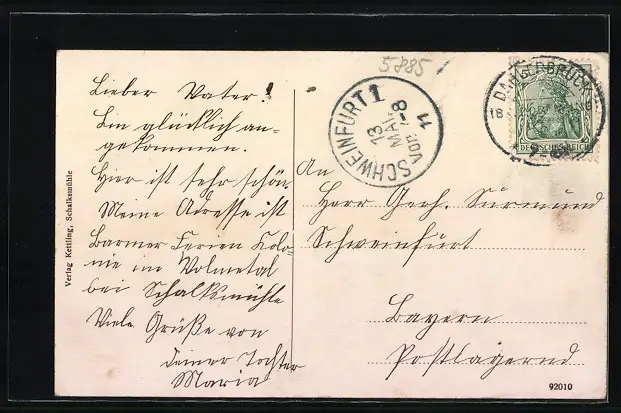 5885
Lieber Vater!
Bin glücklich an-
gekommen.
Hier ist sehr schön.
Meine Adresse ist
Barmer Ferien Kolo-
nie im Volmetal
bei Schalksmühle
Viele Grüße von
deiner Tochter
Maria
Verlag Kettling, Schalksmühle
SCHWEINFURT 1
13
MAI
VOR. 7-8
11
DEUTSCHES REICH
An
Herr Gerh. Surmund
Schweinfurt
Bayern
Postlagernd
92010